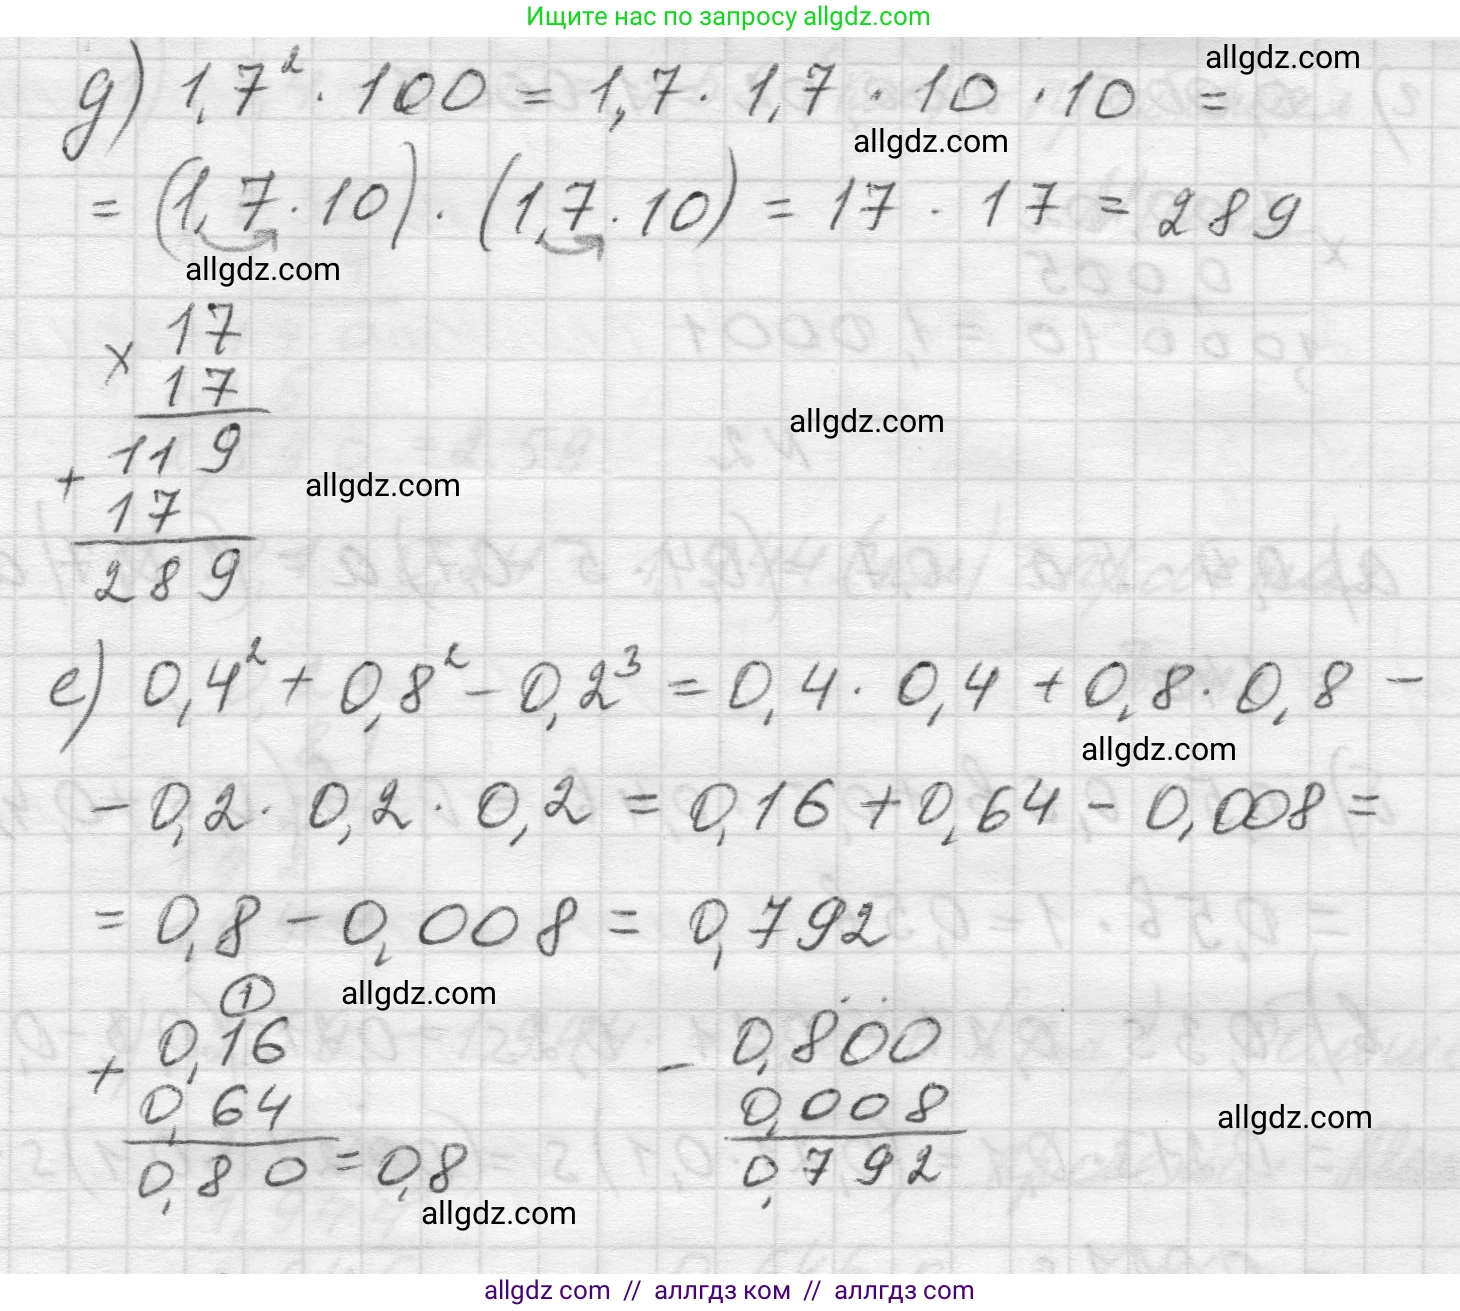 Ищите нас по запросу allgdz.com
allgdz.com
д) 1,7² · 100 = 1,7 · 1,7 · 10 · 10 =
allgdz.com
= (1,7 · 10) · (1,7 · 10) = 17 · 17 = 289
allgdz.com
× 17
17
allgdz.com
119
allgdz.com
+ 17
289
е) 0,4² + 0,8² - 0,2³ = 0,4 · 0,4 + 0,8 · 0,8 -
allgdz.com
- 0,2 · 0,2 · 0,2 = 0,16 + 0,64 - 0,008 =
= 0,8 - 0,008 = 0,792
1
allgdz.com
0,16
+ 0,64
0,80 = 0,8
- 0,800
0,008
allgdz.com
0,792
allgdz.com
allgdz com // аллгдз ком // аллгдз com